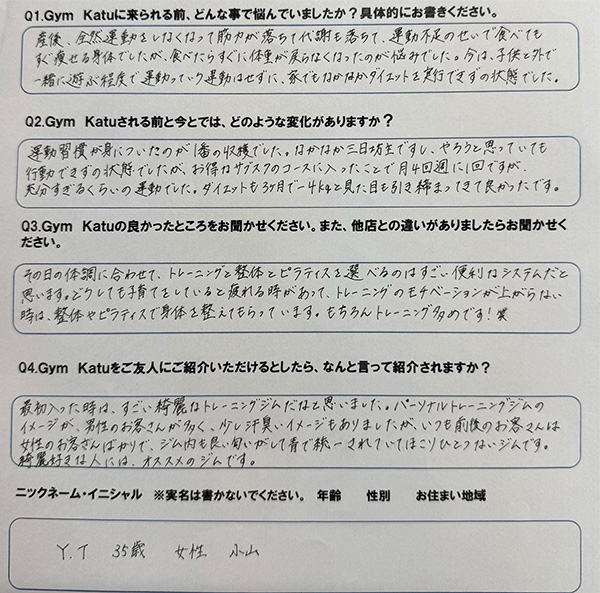 Q1.Gym　Katuに来られる前、どんな事で悩んでいましたか？具体的にお書きください。
産後、全然運動をしなくなって筋力が落ちて代謝も落ちて、運動不足のせいで食べても
すぐ痩せる身体でしたが、食べたらすぐに体重が戻らなくなったのが悩みでした。今は、子供と外で
一緒に遊ぶ程度で運動っていう運動はせずに、家でもなかなかダイエットを実行できずの状態でした。
Q2.Gym　Katuされる前と今とでは、どのような変化がありますか？
運動習慣が身についたのが1番の収穫でした。なかなか三日坊主ですし、やろうと思っていても
行動できずの状態でしたが、お得なサブスクのコースに入ったことで月4回週に1回ですが、
充分すぎるくらいの運動でした。ダイエットも3ヶ月で－4kgと見た目も引き締まってきて良かったです。
Q3.Gym　Katuの良かったところをお聞かせください。また、他店との違いがありましたらお聞かせく
ださい。
その日の体調に合わせて、トレーニングと整体とピラティスを選べるのはすごい便利なシステムだと
思います。どうしても子育てをしていると疲れる時があって、トレーニングのモチベーションが上がらない
時は、整体やピラティスで身体を整えてもらっています。もちろんトレーニング多めです！笑
Q4.Gym　Katuをご友人にご紹介いただけるとしたら、なんと言って紹介されますか？
最初入った時は、すごい綺麗なトレーニングジムだなと思いました。パーソナルトレーニングジムの
イメージが、男性のお客さんが多く、少し汗臭いイメージもありましたが、いつも前後のお客さんは
女性のお客さんばかりで、ジム内も良い匂いがして青で統一されていてほこりひとつないジムです。
綺麗好きな人には、オススメのジムです。
ニックネーム・イニシャル　※実名は書かないでください。　年齢　　性別　　お住まい地域
Y.T　35歳　女性　小山